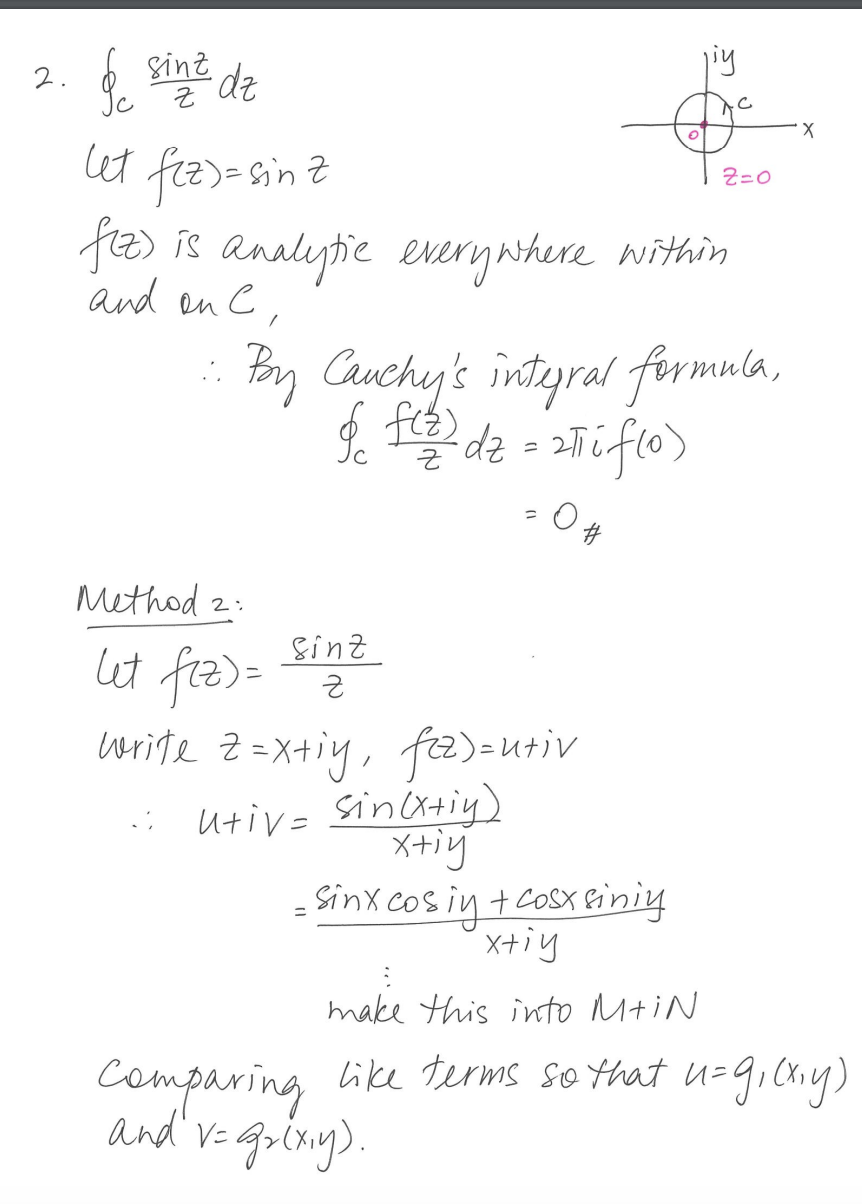 2. ∮_C sinz/z dz
iy
C
x
0
z=0
Let f(z)=sin z
f(z) is analytic everywhere within
and on C,
∴ By Cauchy's integral formula,
∮_C f(z)/z dz = 2πi f(0)
= 0 #
Method 2:
Let f(z)= sinz/z
Write z=x+iy, f(z)=u+iv
∴ u+iv= sin(x+iy)/x+iy
= sinx cosiy + cosx siniy/x+iy
⋮
make this into M+iN
Comparing like terms so that u=g₁(x,y)
and v=g₂(x,y).